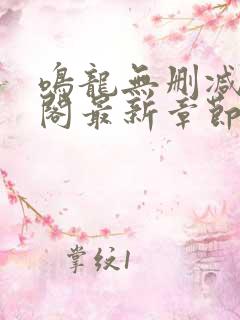 鳴龍無刪減
閣最新章節
掌紋1